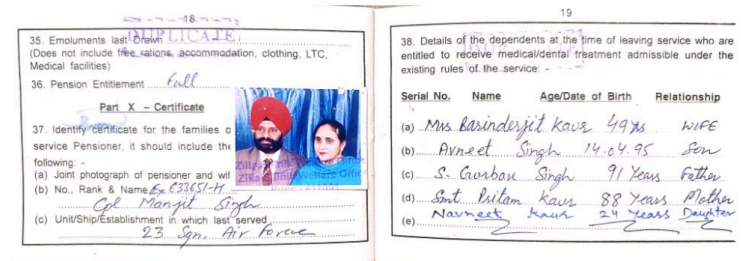 18
35. Emoluments last Drawn
DUPLICATE
(Does not include free rations, accommodation, clothing, LTC,
Medical facilities)
36. Pension Entitlement Full
Part X – Certificate
37. Identify certificate for the families o
service Pensioner, it should include the
following: -
(a) Joint photograph of pensioner and wif
(b) No., Rank & Name Ex 633651-H
Cpl Manjit Singh
(c) Unit/Ship/Establishment in which last served
23 Sqn. Air Force
19
38. Details of the dependents at the time of leaving service who are
entitled to receive medical/dental treatment admissible under the
existing rules of the service: -
Serial No. Name Age/Date of Birth Relationship
(a) Mrs Barinderjit Kaur 49 yrs WIFE
(b) Avneet Singh 14.04.95 Son
(c) S. Gurban Singh 91 Years Father
(d) Smt Pritam Kaur 88 Years Mother
(e) Navneet Kaur 24 Years Daughter